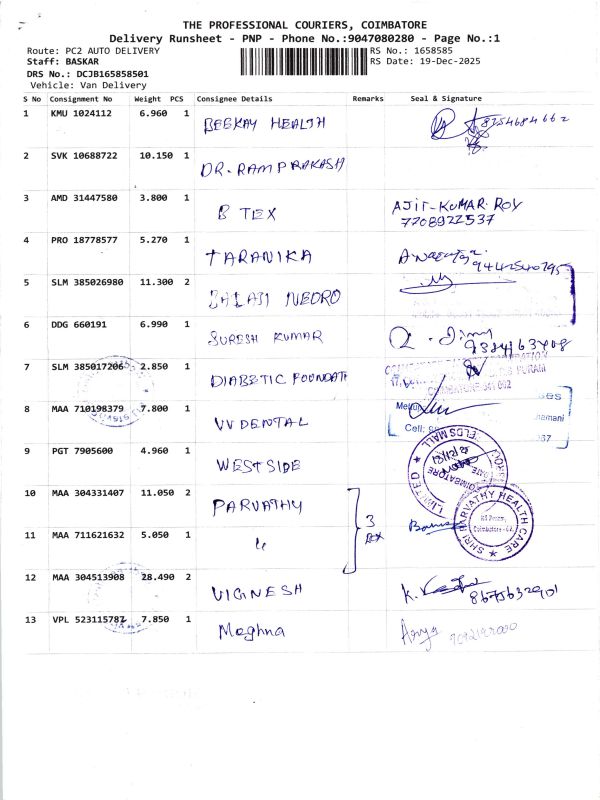 THE PROFESSIONAL COURIERS, COIMBATORE
Delivery Runsheet - PNP - Phone No.:9047080280 - Page No.:1
Route: PC2 AUTO DELIVERY RS No.: 1658585
Staff: BASKAR RS Date: 19-Dec-2025
DRS No.: DCJB165858501
Vehicle: Van Delivery
S No Consignment No Weight PCS Consignee Details Remarks Seal & Signature
1 KMU 1024112 6.960 1 BEEKAY HEALTH 8354684662
2 SVK 10688722 10.150 1 DR. RAMPRAKASH
3 AMD 31447580 3.800 1 B TEX AJIT-KUMAR. ROY
7708922537
4 PRO 18778577 5.270 1 TARANIKA
5 SLM 385026980 11.300 2 BALAJI
6 DDG 660191 6.990 1 SURESH KUMAR
7 SLM 385017206 2.850 1 DIABETIC FOUNDATI
COIMBATORE-641 002
8 MAA 710198379 7.800 1 VV DENTAL
Cell:
9 PGT 7905600 4.960 1 WESTSIDE
LIMITED ★ COIMBATORE
10 MAA 304331407 11.050 2 PARVATHY 3
SHRI PARVATHY HEALTH CARE ★
11 MAA 711621632 5.050 1 "
12 MAA 304513908 28.490 2 VIGNESH K. 8675632901
13 VPL 523115787 7.850 1 Meghna